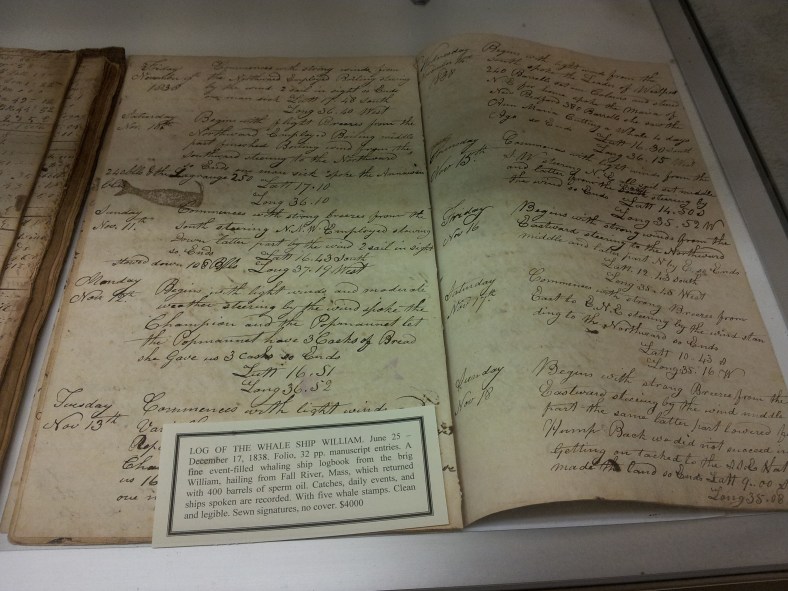 Friday
November 9th
1838
Commences with strong winds from
the Northward Employed Boiling steering
by the wind 2 sail in sight so Ends
one man sick Latt 17.48 South
Long 36.40 West
Saturday
Nov 10th
Begins with light Breeses from the
Northward Employed Boiling middle
part finished Boiling wind from the
Southward steering to the Northward
so Ends man sick spoke the American
Lagrange 250
Latt 17.10
Long 36.10
Sunday
Nov. 11th
Commences with strong breezes from the
South steering N.N.W Employed stowing
down latter part by the wind 2 sail in sight
so Ends Latt 16.43 South
stowed down Bbls Long 37.19 West
Monday
Nov 12th
Begins with light winds and moderate
weather steering by the wind spoke the
Champion and the Popmannet let
the Popmannet have 3 Casks of Bread
she Gave us 3 casks so Ends
Latt 16.51
Long 36.52
Tuesday
Nov 13th
Commences with light winds
us 16
one
Begins with light winds from the
South spoke the of Westport
240 Barrells
N. E. for home spoke the Maria of
New Bedford 350 Barrells also saw the
Ann Maria Cutting a Whale 4 days
Ago so Ends Latt 16.30
Long 36.15 West
Nov 15th
Commences with light winds from the
and latter from the steering by
the wind so Ends Latt 14.50 S
Long 35.52 W
Friday
Nov 16
Begins with strong winds from the
Eastward steering to the Northward
middle and latter part N by E so Ends
Latt 12.13 South
Long 35.48 West
Saturday
Nov 17th
Commences with strong Breeses from
East to E.N.E steering by the wind stan
ding to the Northward so Ends
Latt 10.43 S
Long 35.16 W
Nov 18
Begins with strong Breeses from the
Eastward steering by the wind middle
part the same latter part Lowered for
Hump Back we did not succeed in
Getting on tacked to the
made the land so Ends Latt 9..00 S
Long 35.08
LOG OF THE WHALE SHIP WILLIAM. June 25 –
December 17, 1838. Folio, 32 pp. manuscript entries. A
fine event-filled whaling ship logbook from the brig
William, hailing from Fall River, Mass, which returned
with 400 barrels of sperm oil. Catches, daily events, and
ships spoken are recorded. With five whale stamps. Clean
and legible. Sewn signatures, no cover. $4000